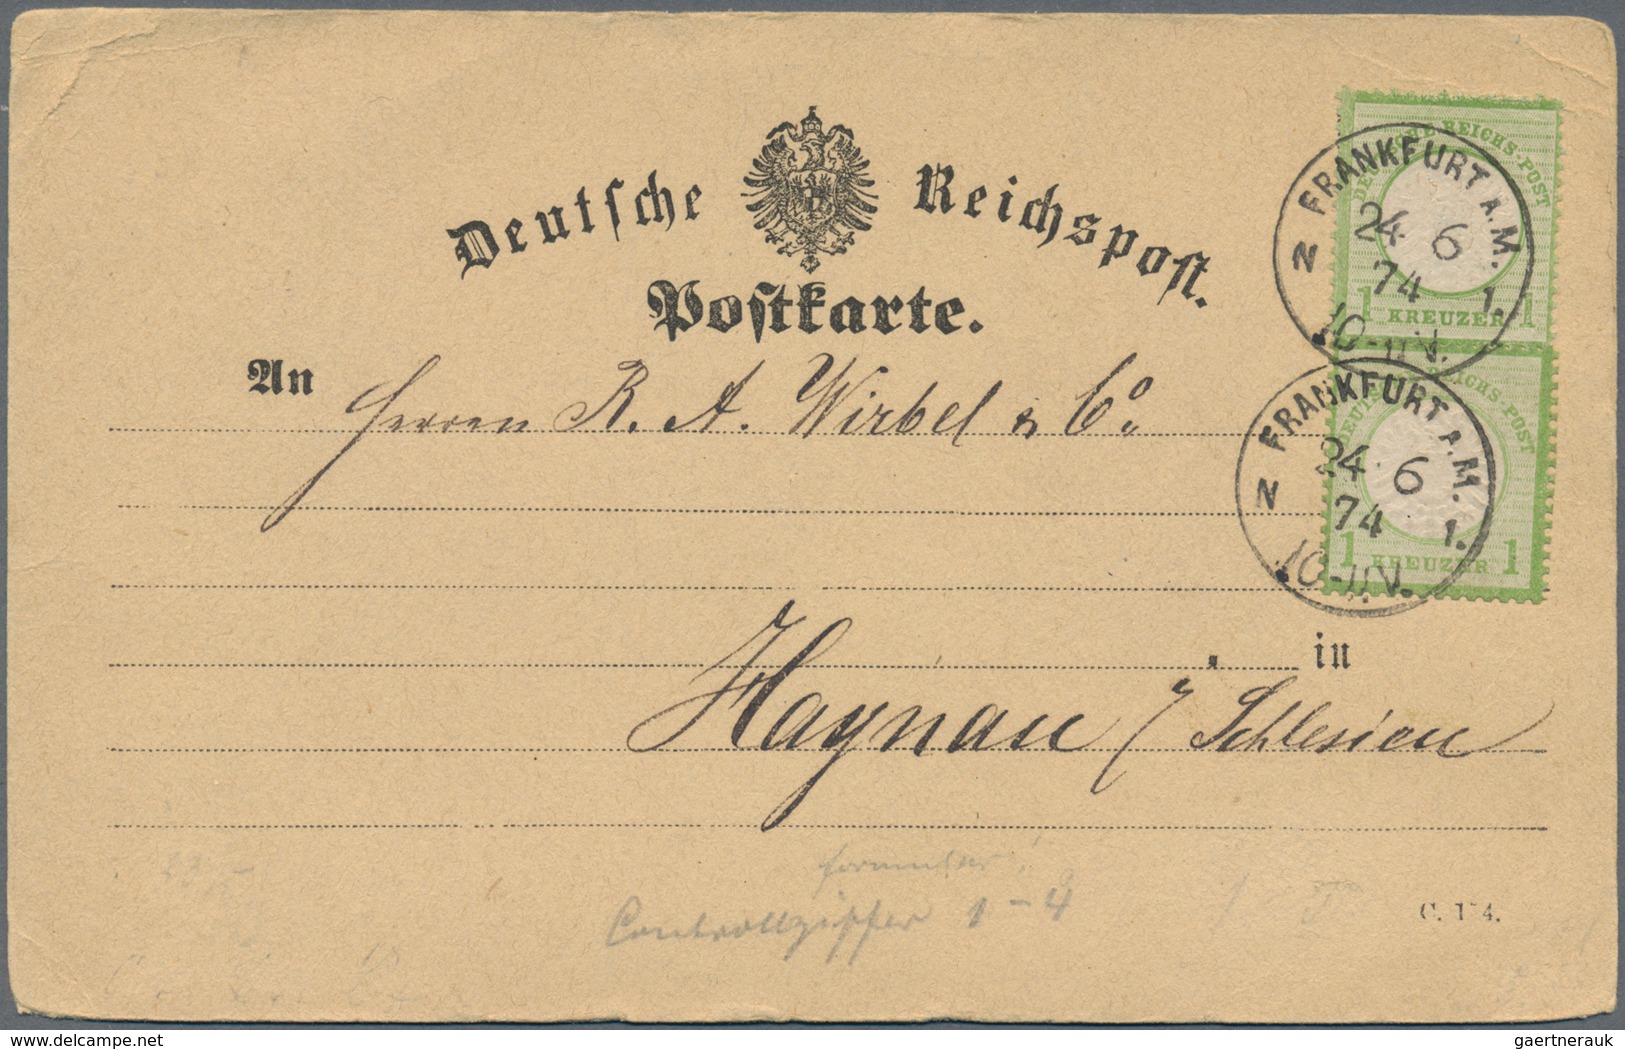 Deutsche Reichspost.
Postkarte.
DEUTSCHE REICHS-POST
1 KREUZER 1
FRANKFURT A. M.
2
24 6
74 1.
10-11 V.
REICHS-POST
1 KREUZER 1
FRANKFURT A. M.
2
24. 6
74 1.
10-11 V.
An Herren R. A. Wirbel & Co.
in
Haynau / Schlesien
formular
Controllziffer 1-4
C. 174.
delcampe.net
gaertnerauk